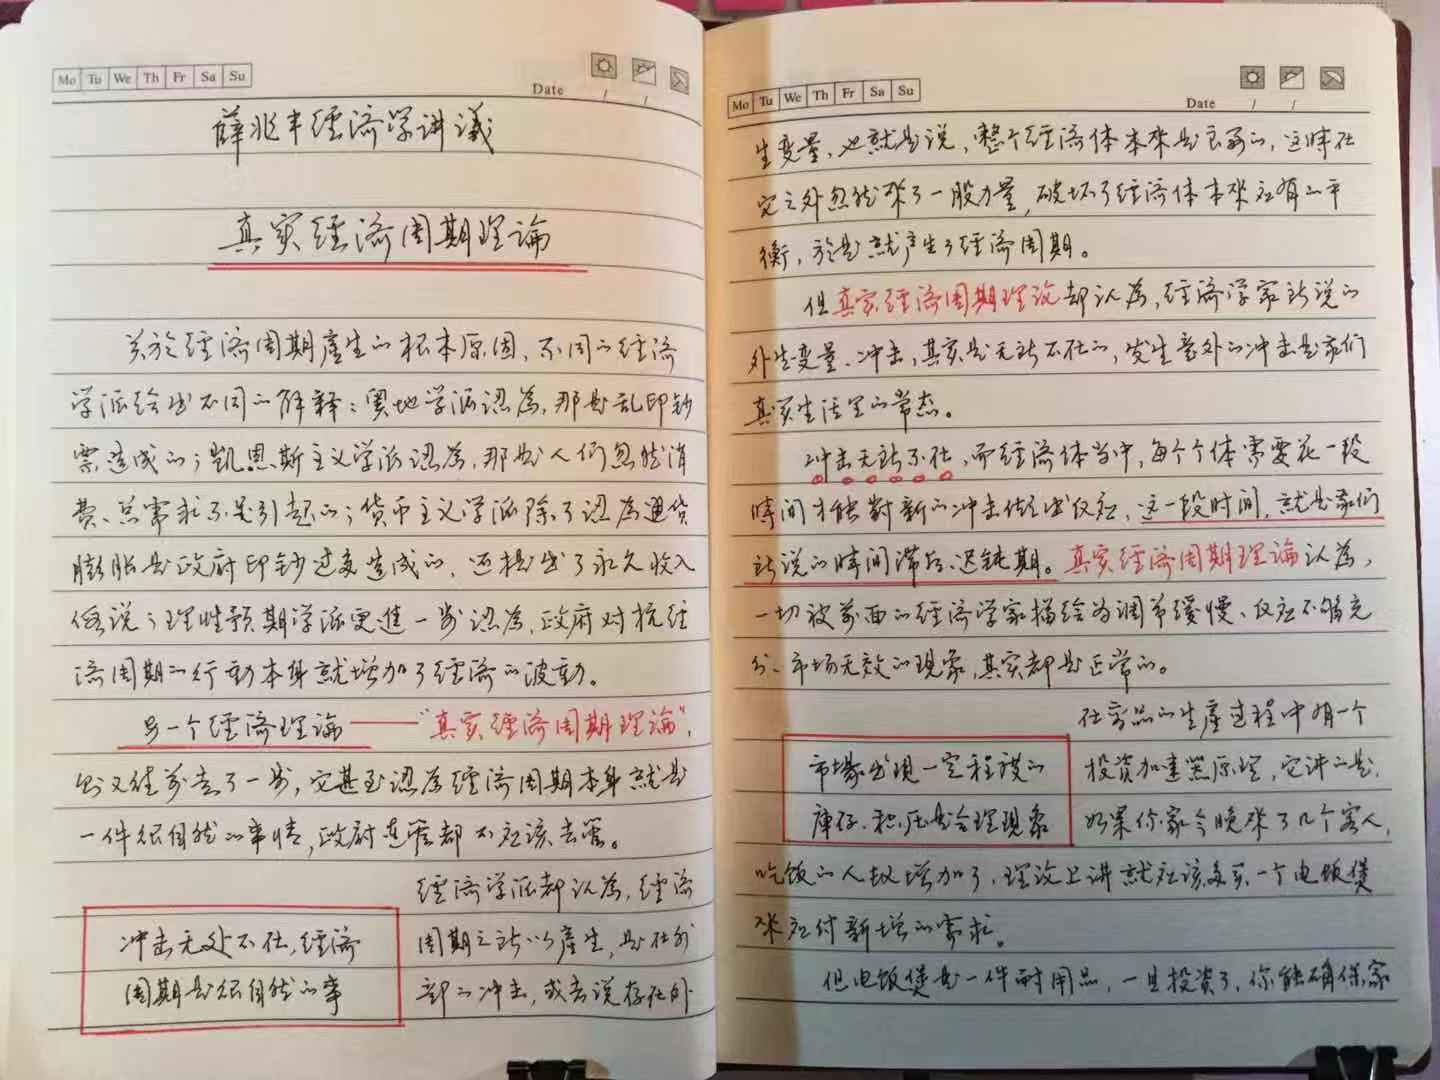 Mo Tu We Th Fr Sa Su
Date / /
薛兆丰经济学讲議
真实经济周期理論
关於经济周期產生的根本原因，不同的经济
学派给出不同的解釋：奥地学派認為，那是乱印鈔
票造成的；凱恩斯主义学派認為，那是人们忽然消
费、总需求不足引起的；货币主义学派除了認為通货
膨胀是政府印鈔过多造成的，还提出了永久收入
假说；理性預期学派更進一步認為，政府对抗经
济周期的行動本身就增加了经济的波動。
另一个经济理論——“真实经济周期理論”，
则又往前走了一步，它甚至認為经济周期本身就是
一件很自然的事情，政府連管都不应該去管。
经济学派都认為，经济
冲击无处不在，经济
周期是很自然的事
周期之所以產生，是在外
部的冲击，或者说存在外
Mo Tu We Th Fr Sa Su
Date / /
生变量，也就是说，整个经济体本来是良好的，这時在
它之外忽然来了一股力量，破坏了经济体本来应有的平
衡，於是就产生了经济周期。
但真实经济周期理论却认為，经济学家所说的
外生变量、冲击，其实是无所不在的，发生意外的冲击是我们
真实生活里的常态。
冲击无所不在，而经济体当中，每个个体需要花一段
時间才能對新的冲击做出反应，这一段时间，就是我们
所说的時间滞后、迟钝期。真实经济周期理論认為，
一切被前面的经济学家描绘为调节缓慢、反应不够充
分、市场无效的现象，其实都是正常的。
在商品的生產过程中有一个
市場出現一定程度的
庫存、积压是合理現象
投资加速器原理，它讲的是，
如果你家今晚来了几个客人，
吃饭的人数增加了，理论上讲就应该多买一个电饭煲
来应付新增的需求。
但电饭煲是一件耐用品，一旦投资了，你能确保家